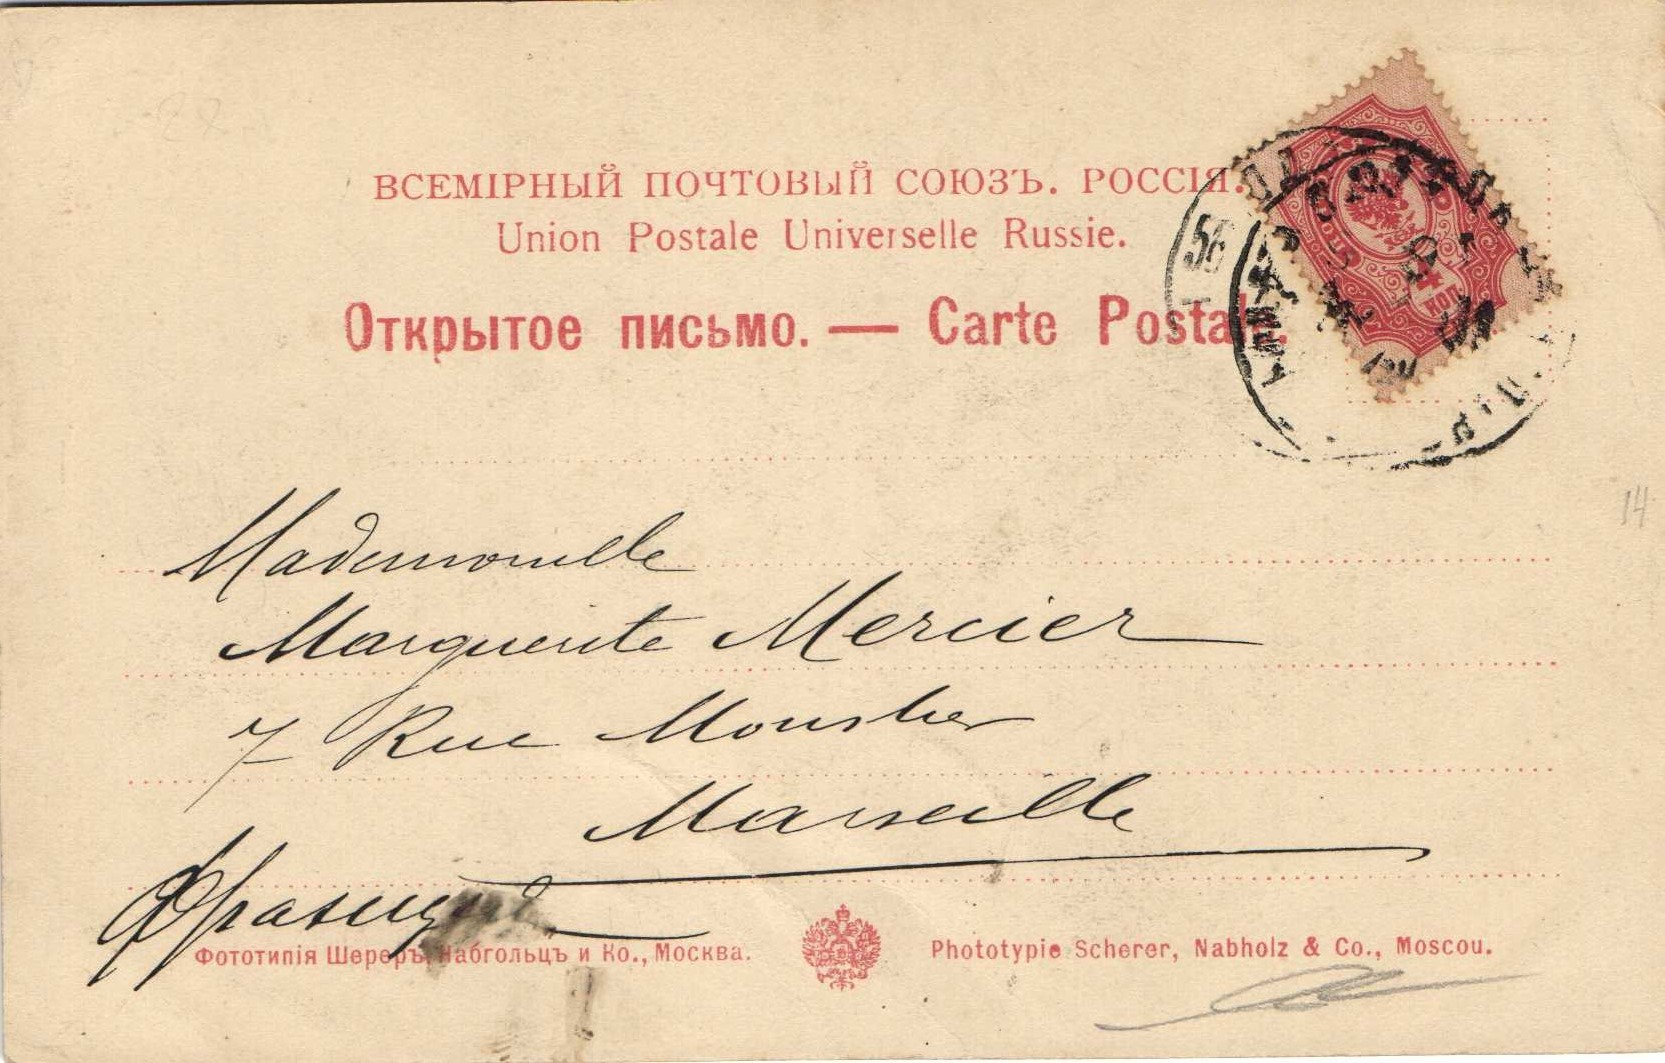 ВСЕМІРНЫЙ ПОЧТОВЫЙ СОЮЗЪ. РОССІЯ.
Union Postale Universelle Russie.
Открытое письмо. — Carte Postale.
56
4
14
Mademoiselle
Marguerite Mercier
7 Rue Moustier
Marseille
Фототипія Шереръ, Набгольцъ и Ко., Москва.
Phototypie Scherer, Nabholz & Co., Moscou.